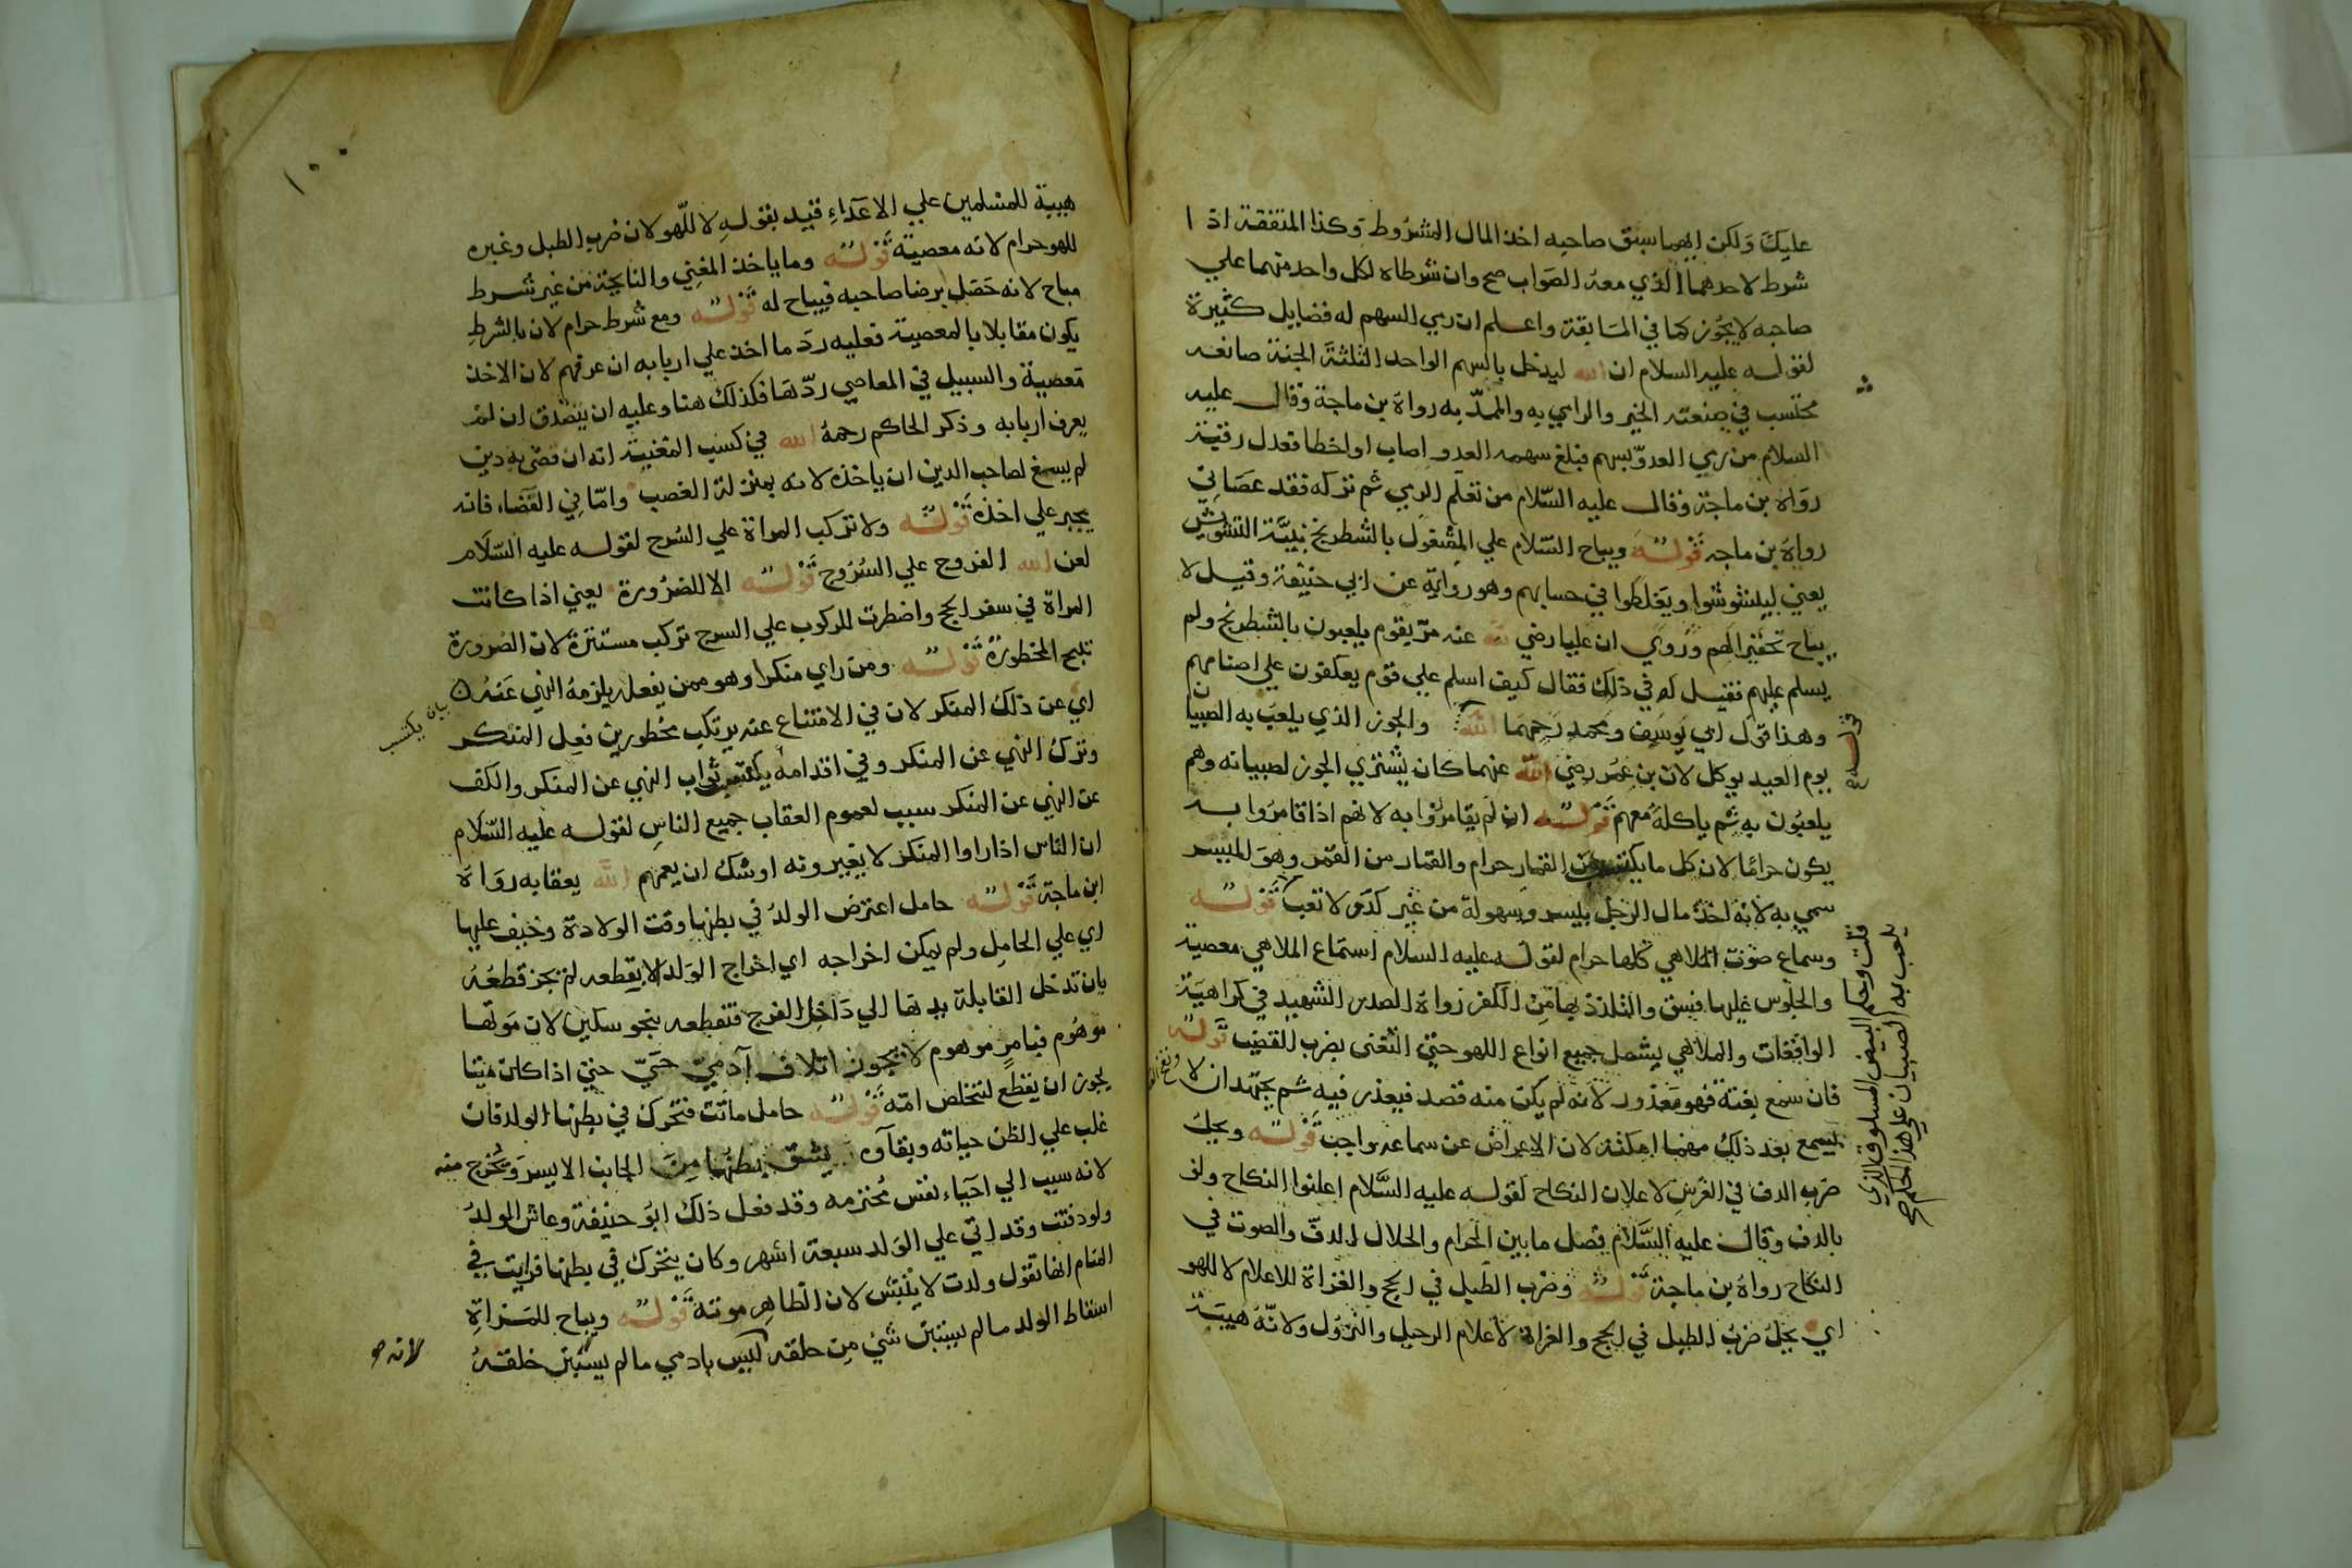 عليك ولكن ايهما سبق صاحبه اخذ المال المشروط وكذا المتفقهة اذا
شرط لاحدهما الذي معه الصواب صح وان شرطاه لكل واحد منهما علي
صاحبه لا يجوز كما في المسابقة واعلم ان رمي السهم له فضايل كثيرة
لقوله عليه السلام ان الله ليدخل بالسهم الواحد الثلثة الجنة صانعه
محتسب في صنعته الخير والرامي به والممدّ به رواه بن ماجة وقال عليه
السلام من رمي العدوّ بسهم فبلغ سهمه العدو اصاب او اخطا فعدل رقبة
رواه بن ماجة وقال عليه السلام من تعلم الرمي ثم تركه فقد عصاني
رواه بن ماجه قوله ويباح السّلام علي المشغول بالشطرنج بنيّة التشويش
يعني ليتشوشوا ويغلطوا في حسابهم وهو رواية عن ابي حنيفة وقيل لا
يباح تحقيرا لهم وروي ان عليا رضي الله عنه مرّ بقوم يلعبون بالشطرنج ولم
يسلم عليهم فقيل له في ذلك فقال كيف اسلم علي قوم يعكفون علي اصنام لهم
وهذا قول ابي يوسف ومحمد رحمهما الله والجوز الذي يلعب به الصبيان
يوم العيد يوكل لان بن عمر رضي الله عنهما كان يشتري الجوز لصبيانه وهم
يلعبون به ثم ياكله معهم قوله ان لم يقامروا به لانهم اذا قامروا به
يكون حراما لان كل ما يكتسب من القمار حرام والقمار من القمر وهو الميسر
سمي به لانه اخذ مال الرجل بيسر وسهولة من غير كدّ ولا تعب قوله
وسماع صوت الملاهي كلها حرام لقوله عليه السلام استماع الملاهي معصية
والجلوس عليها فسق والتلذذ بها من الكفر رواه الصدر الشهيد في كراهية
الواقعات والملاهي يشمل جميع انواع اللهو حتي التغنى بضرب القضيب قوله
فان سمع بغتة فهو معذور لانه لم يكن منه قصد فيعذر فيه ثم يجتهد ان لا
يسمع بعد ذلك مهما امكنه لان الاعراض عن سماعه واجب قوله ويحل
ضرب الدف في العرس لاعلان النكاح لقوله عليه السّلام اعلنوا النكاح ولو
بالدف وقال عليه السّلام فصل ما بين الحرام والحلال الدفّ والصوت في
النكاح رواه بن ماجة قوله وضرب الطبل في الحج والغزاة للاعلام لا للهو
اي يحل ضرب الطبل في الحج والغزاة لاعلام الرحيل والنزول ولانّه هيبة
قلت وحكم البيض المسلوق الذي
يلعب به الصبيان علي هذا الحكم
١٠٠
هيبة للمسلمين علي الاعداء قيد بقوله لا للّهو لان ضرب الطبل وغيره
للهو حرام لانه معصية قوله وما ياخذ المغني والنايحة من غير شرط
مباح لانه حصل برضا صاحبه فيباح له قوله ومع شرط حرام لان بالشرط
يكون مقابلا بالمعصية فعليه ردّ ما اخذ علي اربابه ان عرفهم لان الاخذ
معصية والسبيل في المعاصي ردّها فكذلك هنا وعليه ان يتصدق ان لم
يعرف اربابه وذكر الحاكم رحمه الله في كسب المغنية انه ان قضي به دين
لم يسغ لصاحب الدين ان ياخذه لانه بمنزلة الغصب وامّا في القضاء فانه
يجبر علي اخذه قوله ولا تركب المراة علي السرج لقوله عليه السّلام
لعن الله الفروج علي السروج قوله الا للضرورة يعني اذا كانت
المراة في سفر الحج واضطرت للركوب علي السرج تركب مستترة لان الضرورة
تبيح المحظورة قوله ومن راي منكرا وهو ممن يفعله يلزمه النهي عنه
اي عن ذلك المنكر لان في الامتناع عنه يرتكب محظورين فعل المنكر
وترك النهي عن المنكر وفي اقدامه يكتسب ثواب النهي عن المنكر والكف
عن النهي عن المنكر سبب لعموم العقاب جميع الناس لقوله عليه السّلام
ان الناس اذا راوا المنكر لا يغيرونه اوشك ان يعمهم الله بعقابه رواه
ابن ماجة قوله حامل اعترض الولد في بطنها وقت الولادة وخيف عليها
اي علي الحامل ولم يمكن اخراجه اي اخراج الولد الا بقطعه لم يجز قطعه
بان تدخل القابلة يدها الي داخل الفرج فتقطعه بنحو سكين لان موتها
موهوم فبامر موهوم لا يجوز اتلاف آدميّ حيّ حتي اذا كان ميتا
يجوز ان يقطع لتخلص امّه قوله حامل ماتت فتحرك في بطنها الولد فان
غلب علي الظن حياته وبقاؤه يشق بطنها من الجانب الايسر ويخرج منه
لانه سبب الي احياء نفس محترمه وقد فعل ذلك ابو حنيفة وعاش الولد
ولو دفنت وقد اتي علي الولد سبعة اشهر وكان يتحرك في بطنها فرايت في
المنام انها تقول ولدت لا ينبش لان الظاهر موته قوله ويباح للمراة
اسقاط الولد ما لم يستبن شي من خلقه لانه ليس بادمي ما لم يستبن خلقه
بيان يكتسب
لانه صح